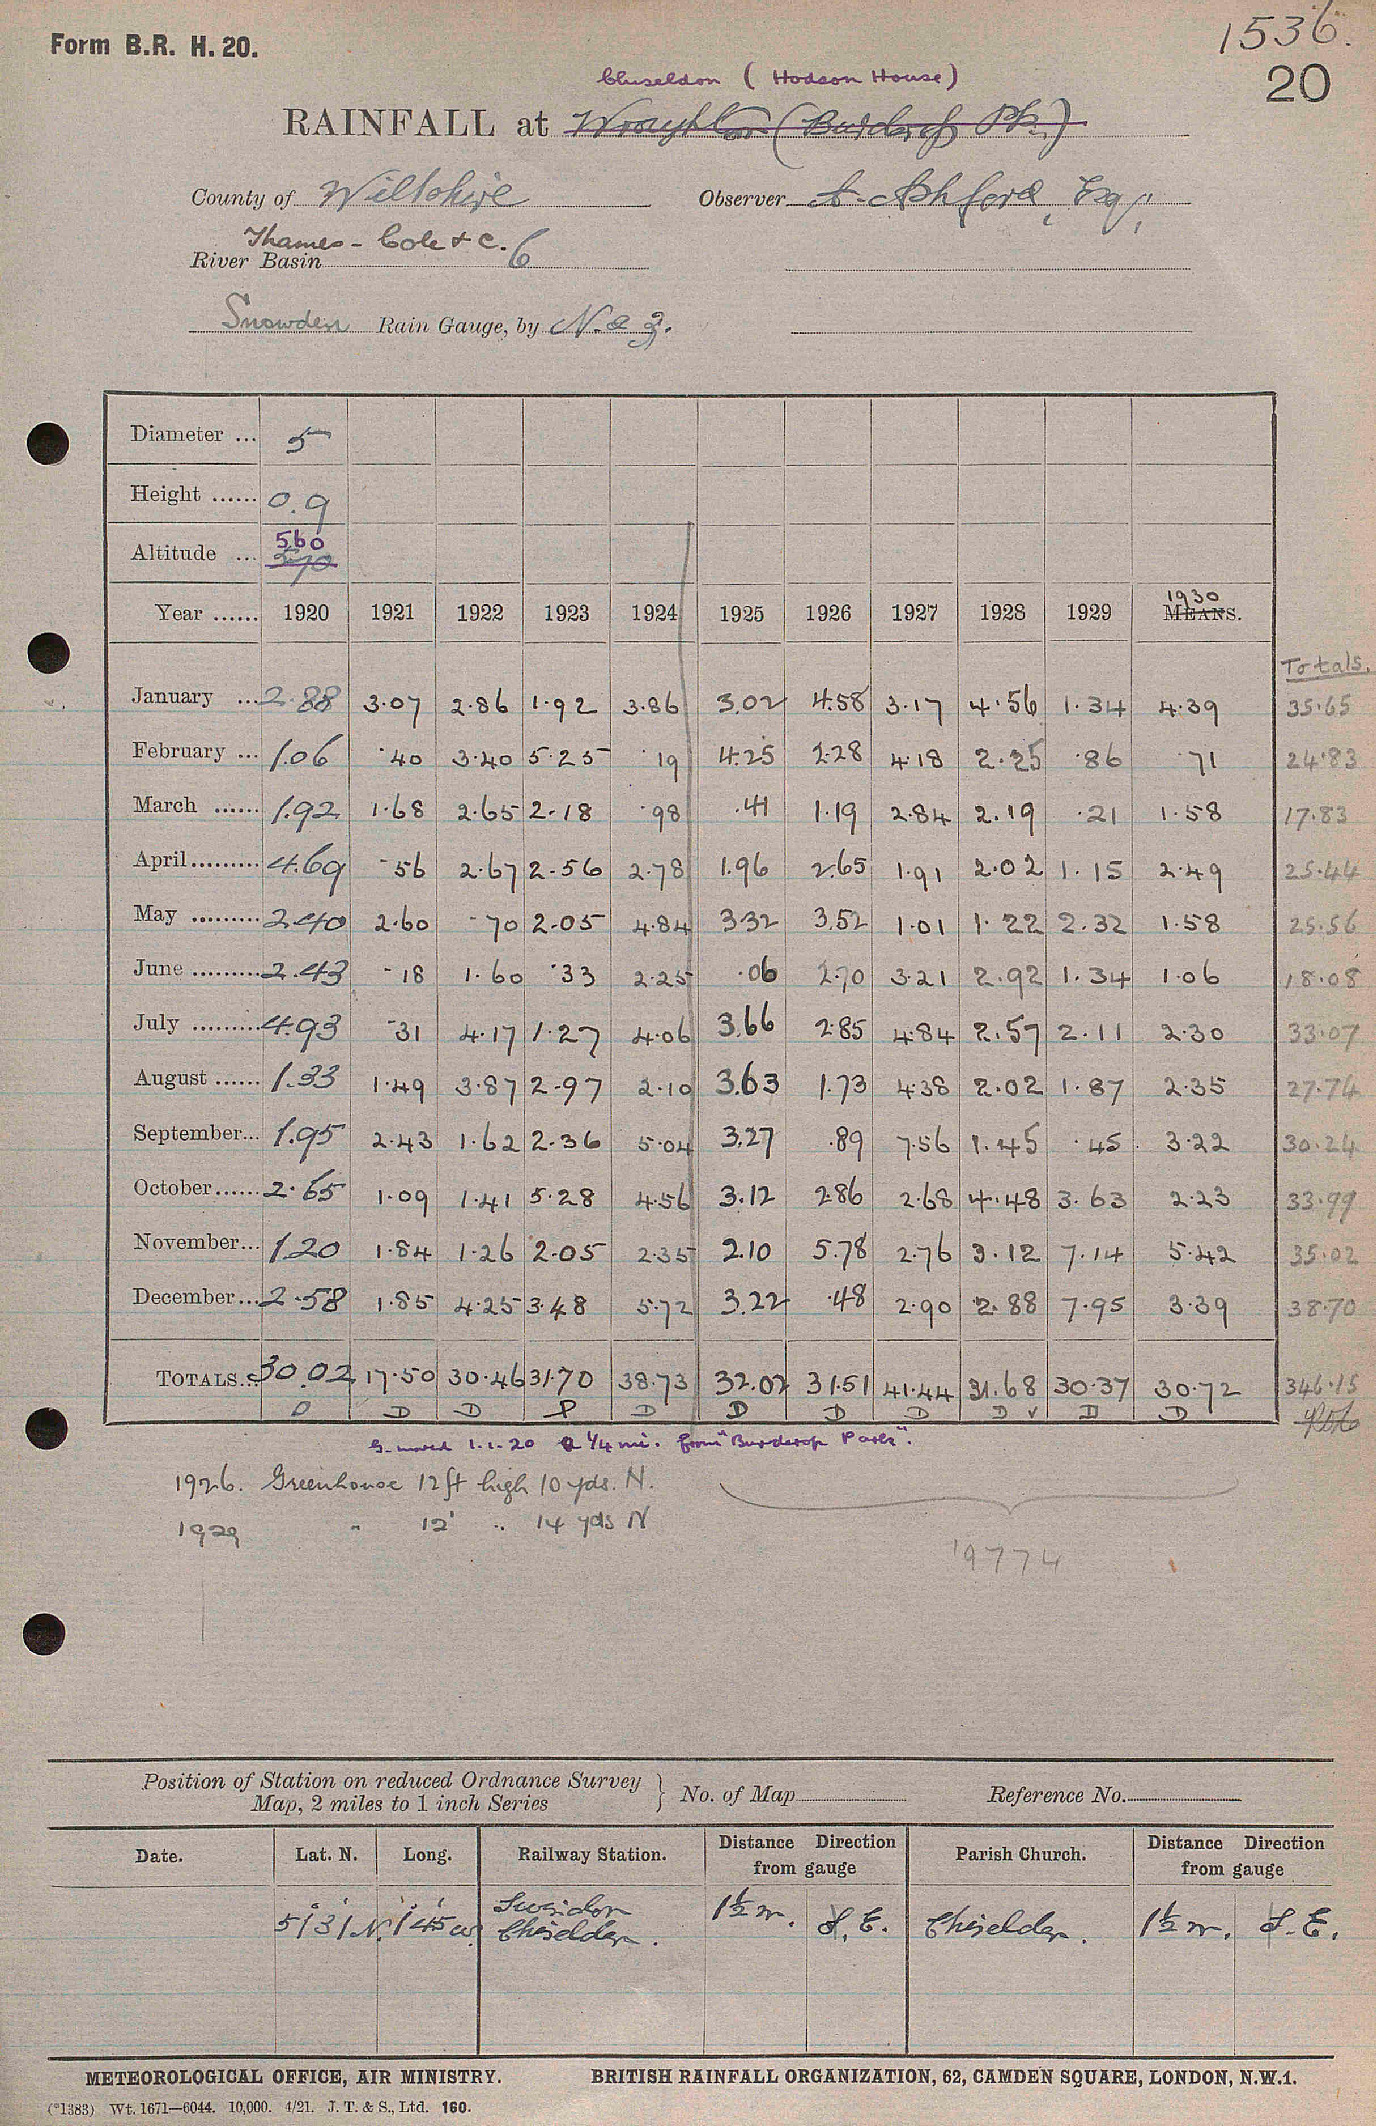 1536.
Form B.R. H. 20.
20
Chiseldon ( Hodson House )
RAINFALL at Wroughton (Burderop Pk.)
County of Wiltshire Observer A. Ashford, Esq,
Thames - Cole & c. 6
River Basin
Snowden Rain Gauge, by N. & Z.
Diameter ... 5
Height ...... 0.9
560
Altitude ... 570
1930
Year ...... 1920 1921 1922 1923 1924 1925 1926 1927 1928 1929 MEANS.
Totals.
January ... 2.88 3.07 2.86 1.92 3.86 3.02 4.58 3.17 4.56 1.34 4.39 35.65
February ... 1.06 .40 3.40 5.25 .19 4.25 2.28 4.18 2.25 .86 .71 24.83
March ...... 1.92 1.68 2.65 2.18 .98 .41 1.19 2.84 2.19 .21 1.58 17.83
April ......... 4.69 .56 2.67 2.56 2.78 1.96 2.65 1.91 2.02 1.15 2.49 25.44
May ......... 2.40 2.60 .70 2.05 4.84 3.32 3.52 1.01 1.22 2.32 1.58 25.56
June ......... 2.43 .18 1.60 .33 2.25 .06 2.70 3.21 2.92 1.34 1.06 18.08
July ......... 4.93 .31 4.17 1.27 4.06 3.66 2.85 4.84 2.57 2.11 2.30 33.07
August ...... 1.33 1.49 3.87 2.97 2.10 3.63 1.73 4.38 2.02 1.87 2.35 27.74
September... 1.95 2.43 1.62 2.36 5.04 3.27 .89 7.56 1.45 .45 3.22 30.24
October...... 2.65 1.09 1.41 5.28 4.56 3.12 2.86 2.68 4.48 3.63 2.23 33.99
November... 1.20 1.84 1.26 2.05 2.35 2.10 5.78 2.76 3.12 7.14 5.42 35.02
December... 2.58 1.85 4.25 3.48 5.72 3.22 .48 2.90 2.88 7.95 3.39 38.70
TOTALS... 30.02 17.50 30.46 31.70 38.73 32.02 31.51 41.44 31.68 30.37 30.72 346.15
D D D P D D D D D v D D
G. moved 1.1.20 a 1/4 mi. from "Burderop Park".
1926. Greenhouse 12 ft high 10 yds. N.
1929 " 12' " 14 yds N
19774
Position of Station on reduced Ordnance Survey
Map, 2 miles to 1 inch Series
No. of Map Reference No.
Date. Lat. N. Long. Railway Station. Distance Direction from gauge Parish Church. Distance Direction from gauge
51° 31' N. 1° 45' W. Swindon Chiseldon. 1½ m. S. E. Chiseldon. 1½ m. S. E.
METEOROLOGICAL OFFICE, AIR MINISTRY. BRITISH RAINFALL ORGANIZATION, 62, CAMDEN SQUARE, LONDON, N.W.1.
(*1383) Wt. 1671—6044. 10,000. 4/21. J. T. & S., Ltd. 160.